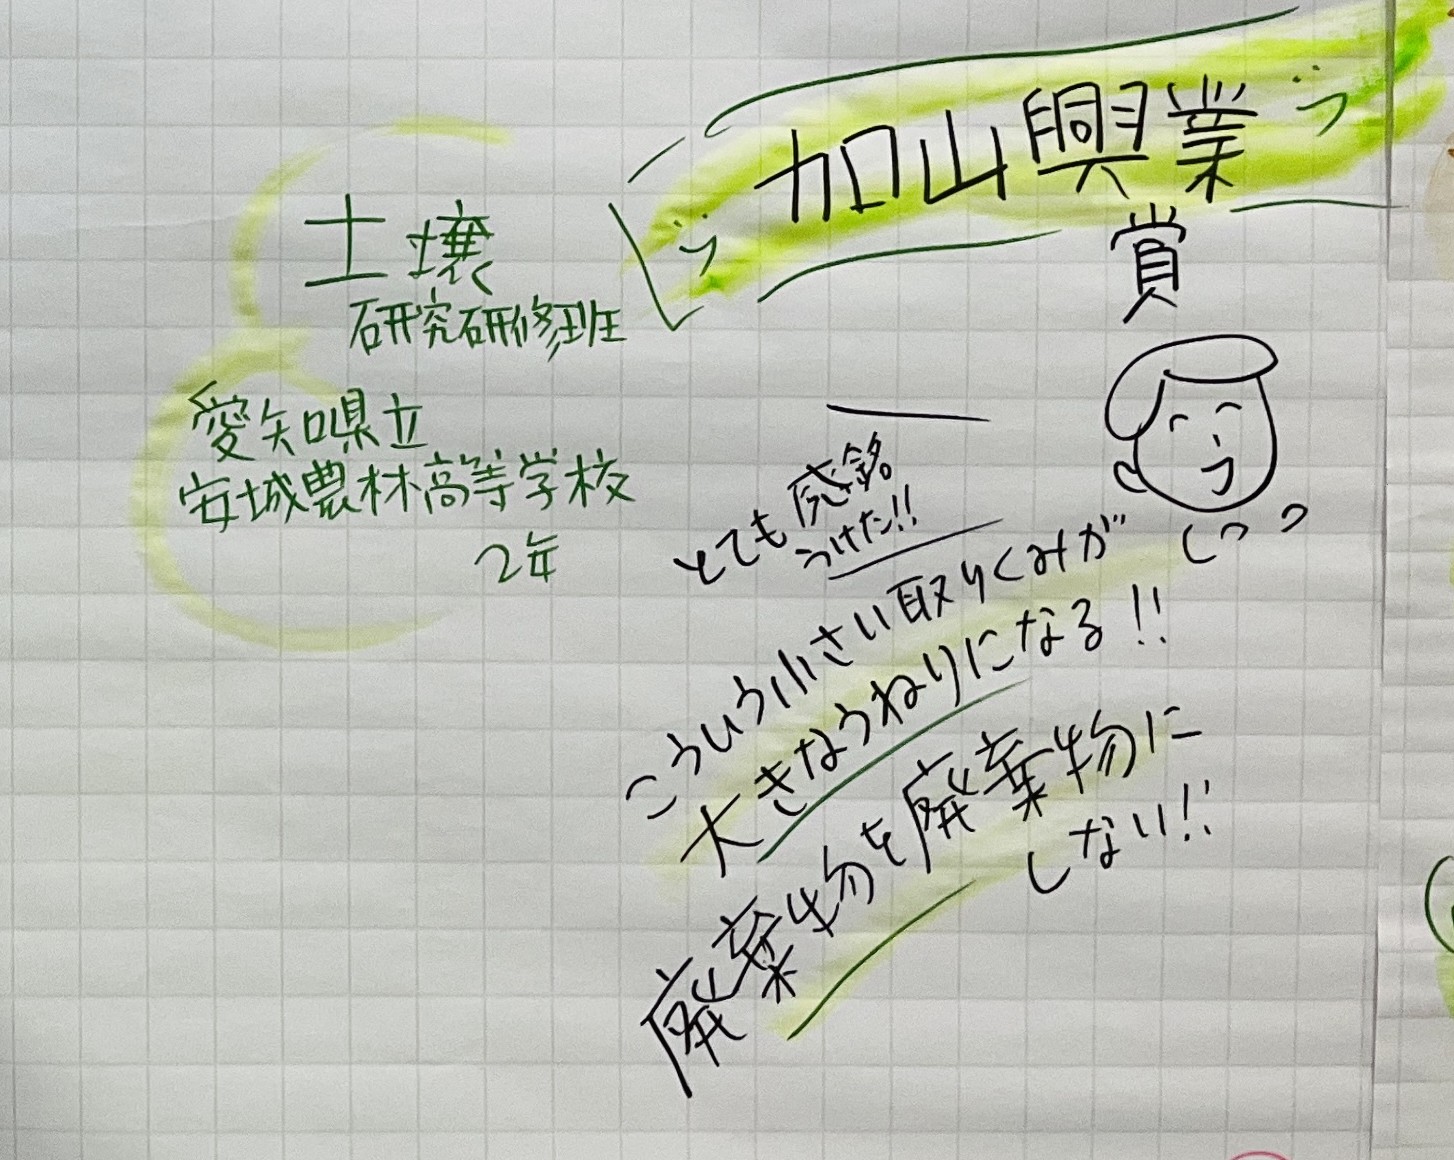 加山興業
賞
土壌
研究研修班
愛知県立
安城農林高等学校
2年
とても感銘
うけた!!
こういう小さい取りくみが
大きなうねりになる!!
廃棄物を廃棄物に
しない!!